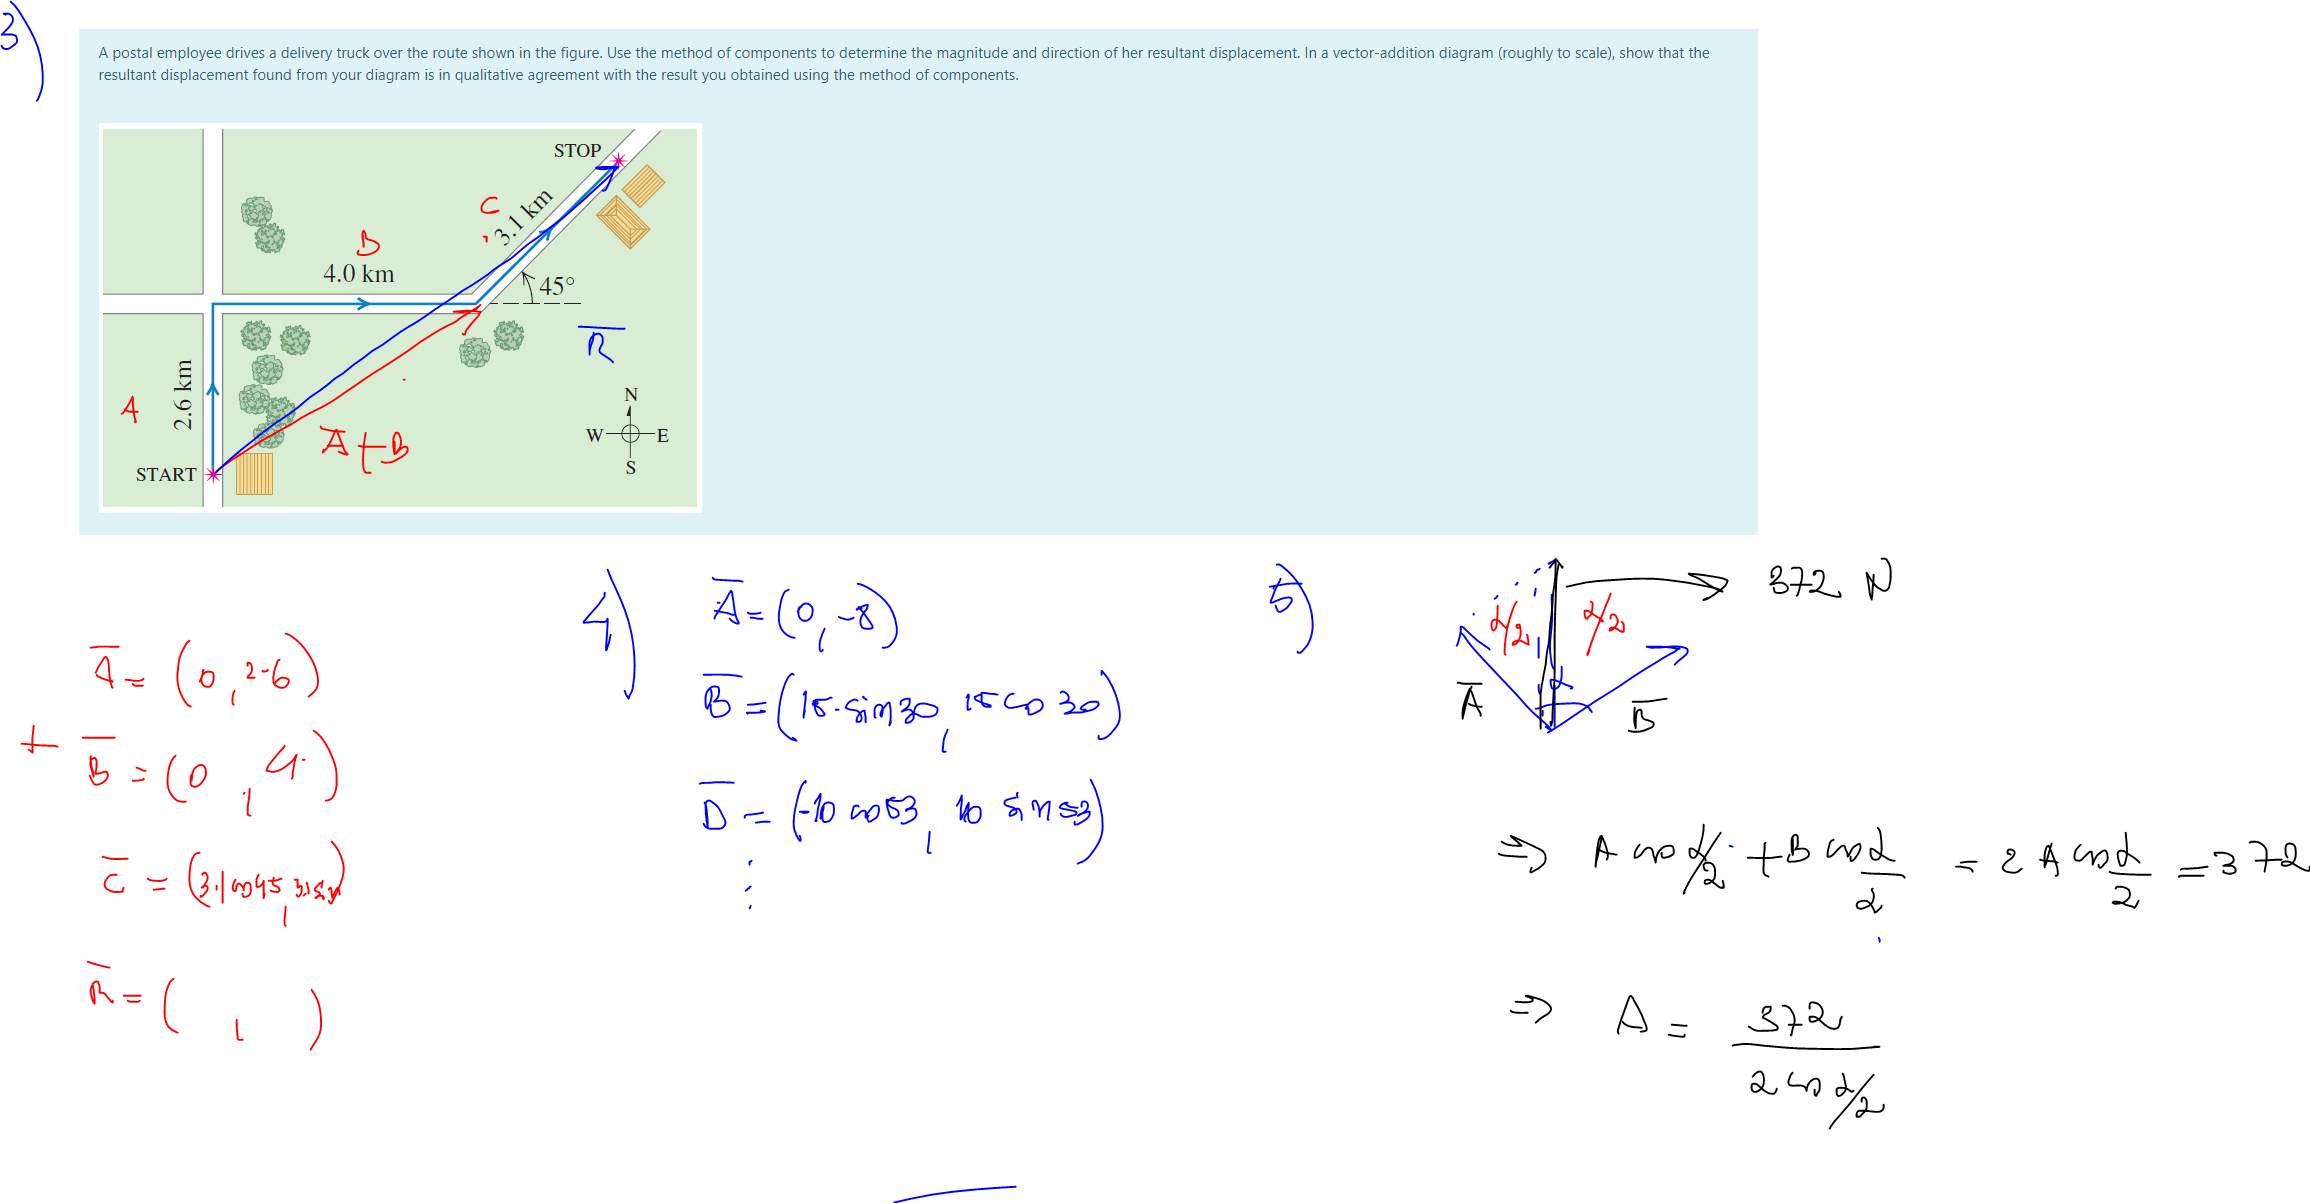 3)
A postal employee drives a delivery truck over the route shown in the figure. Use the method of components to determine the magnitude and direction of her resultant displacement. In a vector-addition diagram (roughly to scale), show that the
resultant displacement found from your diagram is in qualitative agreement with the result you obtained using the method of components.
STOP
C
3.1 km
B
4.0 km
45°
R̅
A
2.6 km
N
W
E
S
A̅+B
START
A̅ = (0, 2.6)
+ B̅ = (0, 4.)
C̅ = (3.1 cos45, 3.1 sin
R̅ = ( , )
4)
A̅ = (0, -8)
B̅ = (15. sin 30, 15 cos 30)
D̅ = (-10 cos 53, 10 sin 53)
⋮
5)
372 N
α/2
α/2
α
A̅
B̅
⇒ A cos α/2 + B cos α/2 = 2 A cos α/2 = 372
⇒ A = 372
2 cos α/2